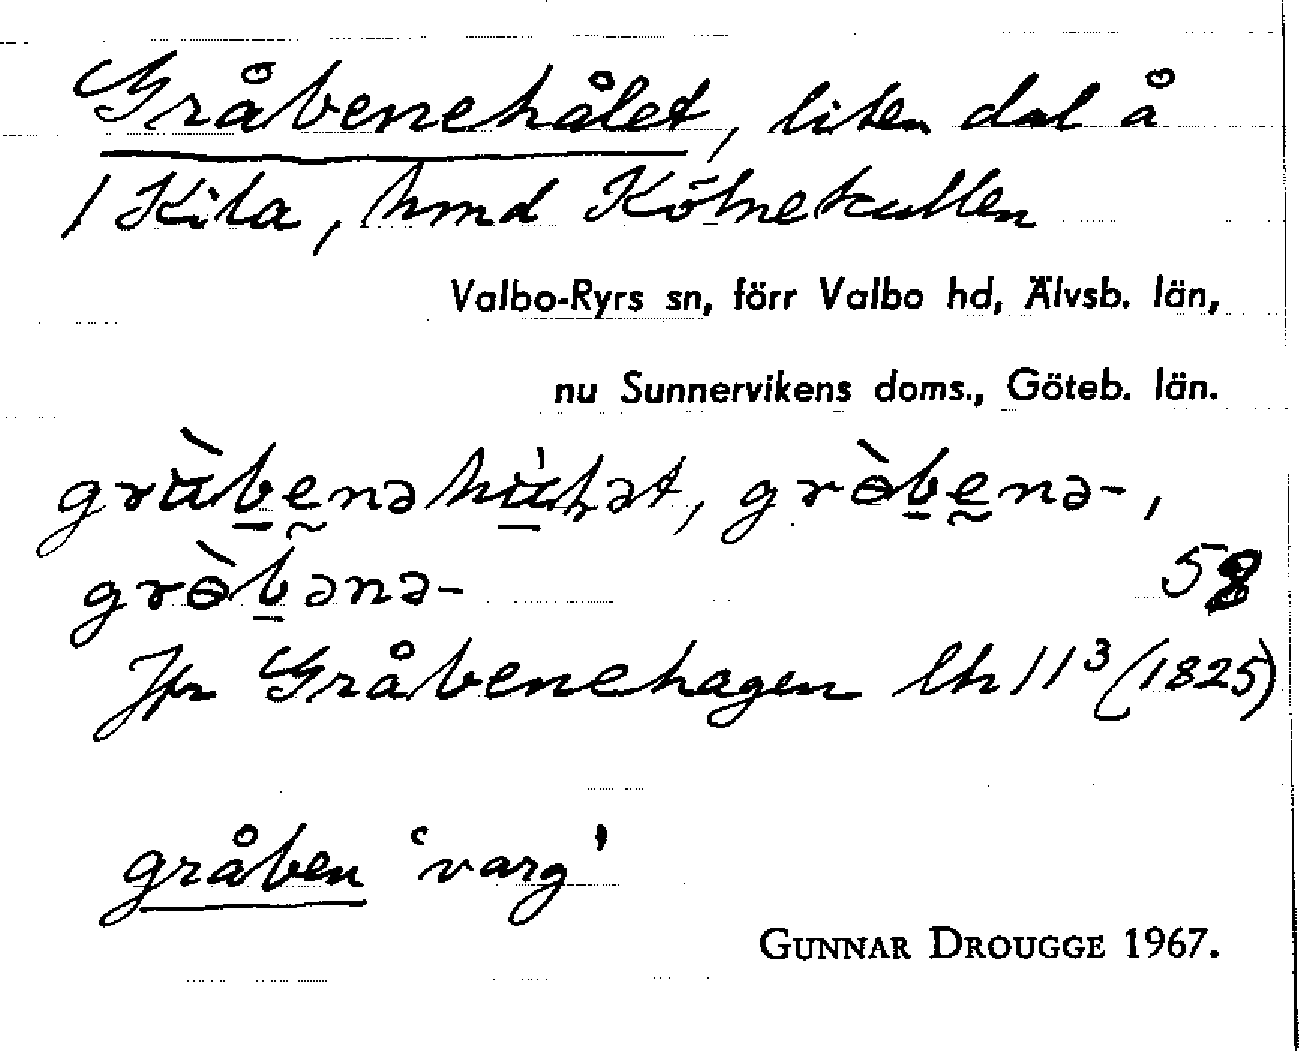 Gråbenehålet, liten dal å
/ Kila, hmd Kölnekullen
Valbo-Ryrs sn, förr Valbo hd, Älvsb. län,
nu Sunnervikens doms., Göteb. län.
58
Jfr Gråbenehagen lh 11³ (1825)
gråben 'varg'
GUNNAR DROUGGE 1967.